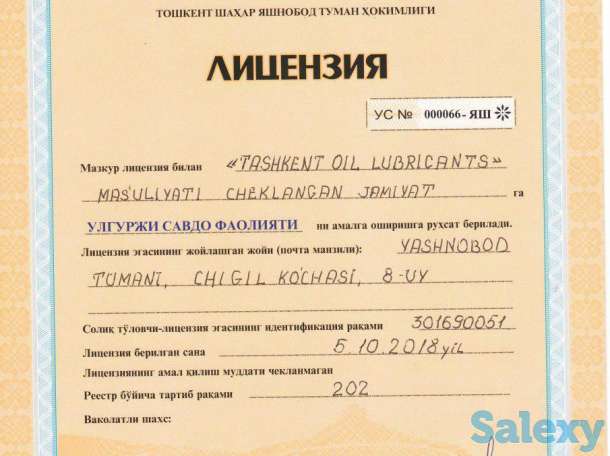 ТОШКЕНТ ШАҲАР ЯШНОБОД ТУМАН ҲОКИМЛИГИ
ЛИЦЕНЗИЯ
УС № 000066 - ЯШ
Мазкур лицензия билан «TASHKENT OIL LUBRICANTS»
MAS'ULIYATI CHEKLANGAN JAMIYAT га
УЛГУРЖИ САВДО ФАОЛИЯТИ ни амалга оширишга рухсат берилади.
Лицензия эгасининг жойлашган жойи (почта манзили): YASHNOBOD
TUMANI, CHIGIL KO'CHASI, 8-UY
Солиқ тўловчи-лицензия эгасининг идентификация рақами 301690051
Лицензия берилган сана 5.10.2018 yil
Лицензиянинг амал қилиш муддати чекланмаган
Реестр бўйича тартиб рақами 202
Ваколатли шахс:
Salexy